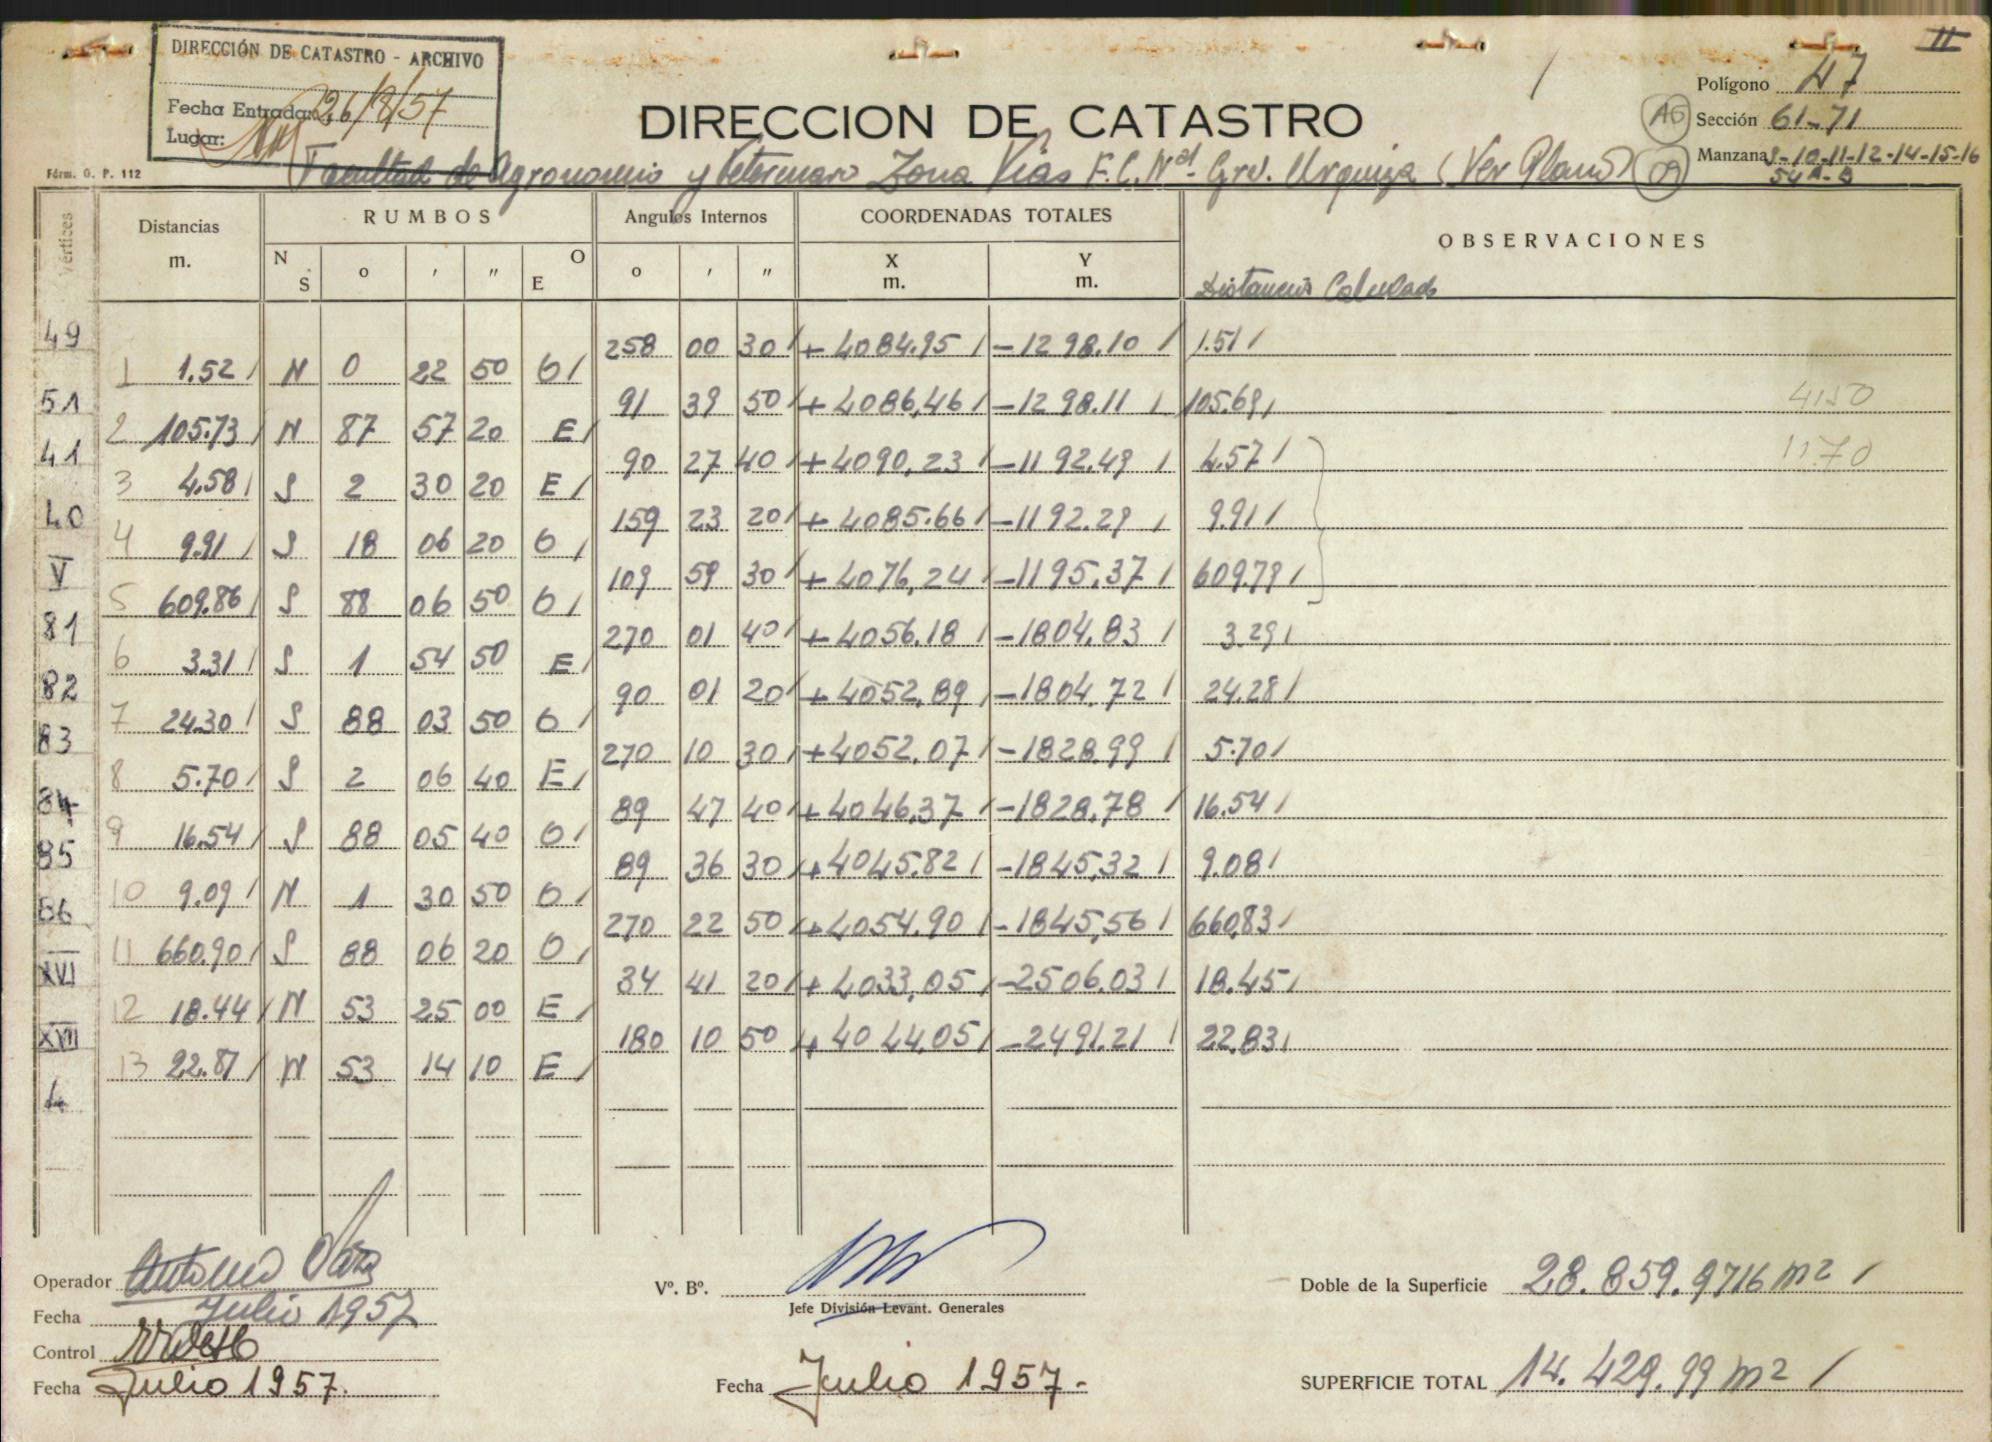 II
DIRECCIÓN DE CATASTRO - ARCHIVO
Fecha Entrada: 26/8/57
Lugar:
DIRECCION DE CATASTRO
Polígono 47
A6 Sección 61-71
Manzana 9-10-11-12-14-15-16
54A-B
Fórm. G. P. 112
Facultad de Agronomia y Veterinaria Zona Vias F.C.Nal. Gral. Urquiza (Ver Plano) 09
Vértices Distancias m. RUMBOS Angulos Internos COORDENADAS TOTALES OBSERVACIONES
N S o ' " O E o ' " X m. Y m. Distancia Calculada
49 258 00 30 + 4084.95 - 1298.10 1.51
1 1.52 N 0 22 50 O
51 91 39 50 + 4086,46 - 1298.11 105.69 4150
2 105.73 N 87 57 20 E
41 90 27 40 + 4090,23 - 1192.49 4.57 1170
3 4.58 S 2 30 20 E
40 159 23 20 + 4085.66 - 1192.29 9.91
4 9.91 S 18 06 20 O
V 109 59 30 + 4076,24 - 1195.37 609.79
5 609.86 S 88 06 50 O
81 270 01 40 + 4056.18 - 1804.83 3.29
6 3.31 S 1 54 50 E
82 90 01 20 + 4052,89 - 1804.72 24.28
7 24.30 S 88 03 50 O
83 270 10 30 + 4052.07 - 1828.99 5.70
8 5.70 S 2 06 40 E
84 89 47 40 + 4046,37 - 1828,78 16.54
9 16.54 S 88 05 40 O
85 89 36 30 + 4045.82 - 1845,32 9.08
10 9.09 N 1 30 50 O
86 270 22 50 + 4054.90 - 1845,56 660,83
11 660.90 S 88 06 20 O
XVI 34 41 20 + 4033,05 - 2506.03 18.45
12 18.44 N 53 25 00 E
XVII 180 10 50 + 4044,05 - 2491.21 22.83
13 22.87 N 53 14 10 E
4
Operador Antonio
Fecha Julio 1957
Control
Fecha Julio 1957.
Vº. Bº.
Jefe División Levant. Generales
Fecha Julio 1957.-
Doble de la Superficie 28.859.9716 m2
SUPERFICIE TOTAL 14.429.99 m2